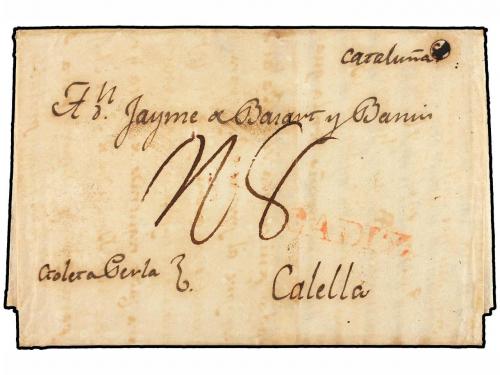 Cataluña
A Dn. Jayme a Barart y Banus
N8
CADIZ
Goleta Perla
Calella